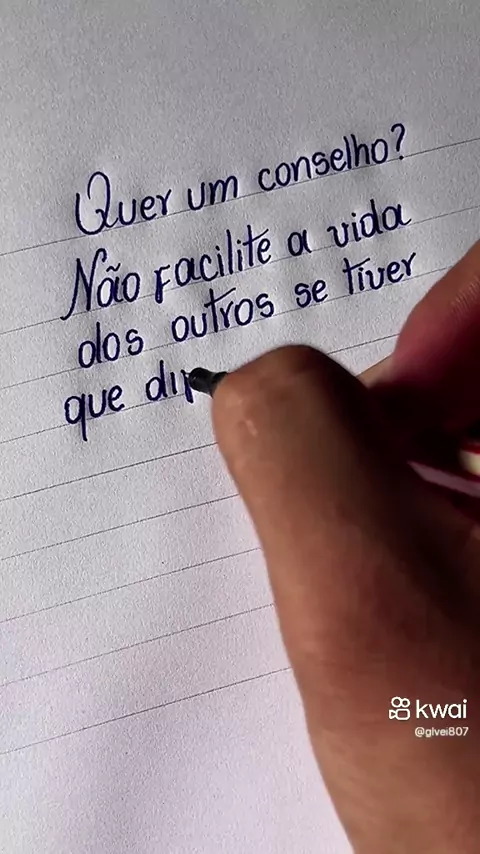 Quer um conselho?
Não facilite a vida
dos outros se tiver
que di
kwai
@glvei807